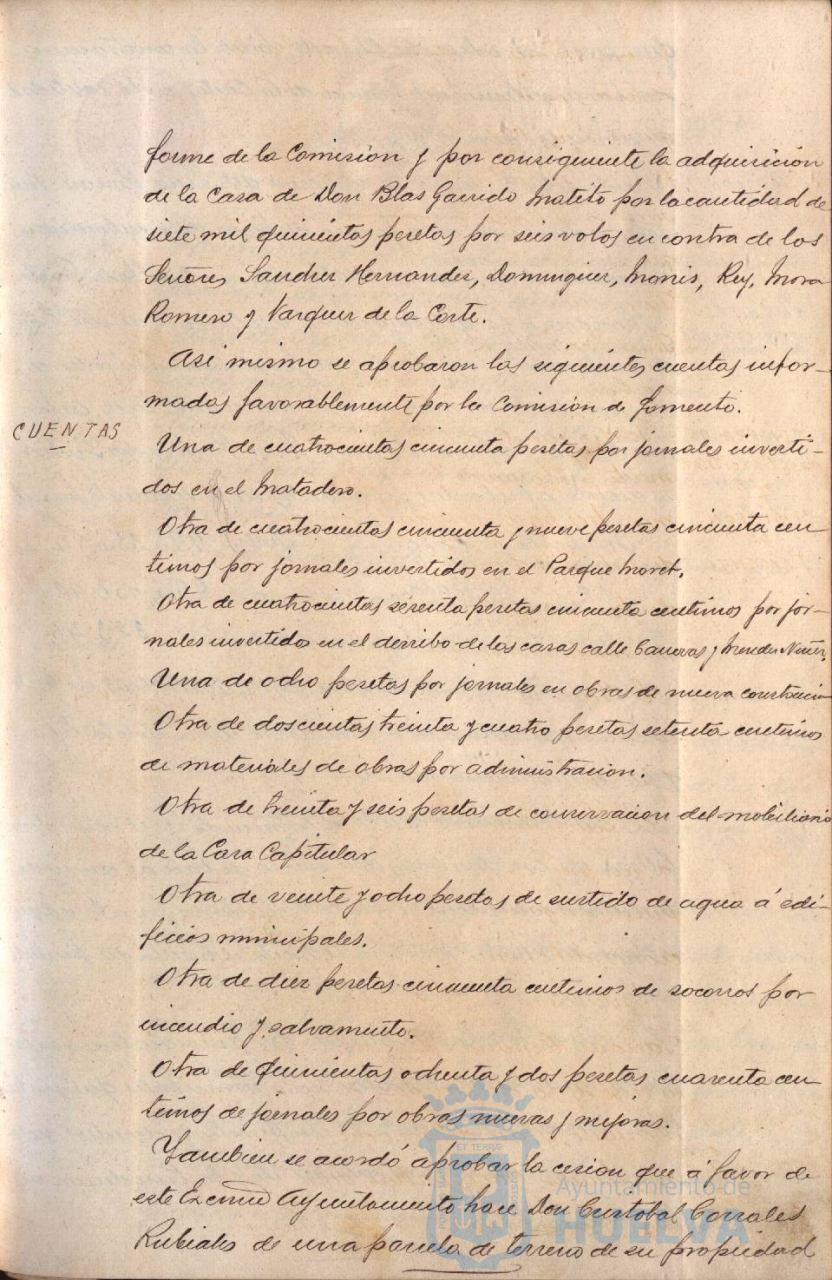 forme de la Comision y por consiguiente la adquisición
de la Casa de Don Blas Garrido Matito por la cantidad de
siete mil quinientas pesetas por seis votos en contra de los
Señores Sanchez Hernandez, Dominguez, Monis, Rey, Mora
Romero y Vazquez de la Corte.
Asi mismo se aprobaron las siguientes cuentas infor-
madas favorablemente por la Comision de fomento.
CUENTAS
Una de cuatrocientas cincuenta pesetas por jornales inverti-
dos en el Matadero.
Otra de cuatrocientas cincuenta y nueve pesetas cincuenta cen
timos por jornales invertidos en el Parque Moret.
Otra de cuatrocientas sesenta pesetas cincuenta centimos por jor-
nales invertidos en el derribo de las casas calle Canovas y Mendez Nuñez.
Una de ocho pesetas por jornales en obras de nueva construccion
Otra de doscientas treinta y cuatro pesetas setenta centimos
de materiales de obras por administracion.
Otra de treinta y seis pesetas de conservacion del mobiliario
de la Casa Capitular
Otra de veinte y ocho pesetas de surtido de agua á edi-
ficios municipales.
Otra de diez pesetas cincuenta centimos de socorros por
incendio y salvamento.
Otra de quinientas ochenta y dos pesetas cuarenta cen
timos de jornales por obras nuevas y mejoras.
Tambien se acordó aprobar la cesion que á favor de
este Excmo Ayuntamiento hace Don Cristobal Corrales
Rubiales de una parcela de terreno de su propiedad
Ayuntamiento de
HUELVA